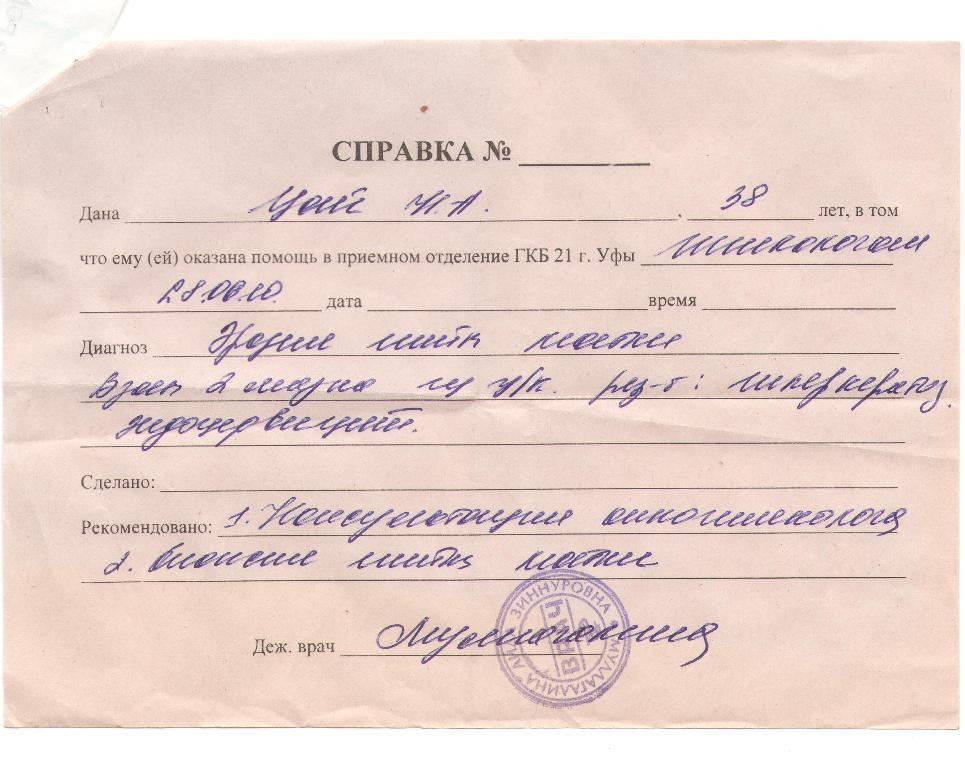 СПРАВКА № ________
Дана Цой Н.А. 38 лет, в том
что ему (ей) оказана помощь в приемном отделение ГКБ 21 г. Уфы гинекологом
28.06.10. дата время
Диагноз Эрозия шейки матки
Взят 2 мазка из ц/к. рез-т: гиперкератоз.
эндоцервицит.
Сделано:
Рекомендовано: 1. Консультация онкогинеколога
2. биопсия шейки матки
Деж. врач Муллагалина
ЗИННУРОВНА * МУЛЛАГАЛИНА
ВРАЧ